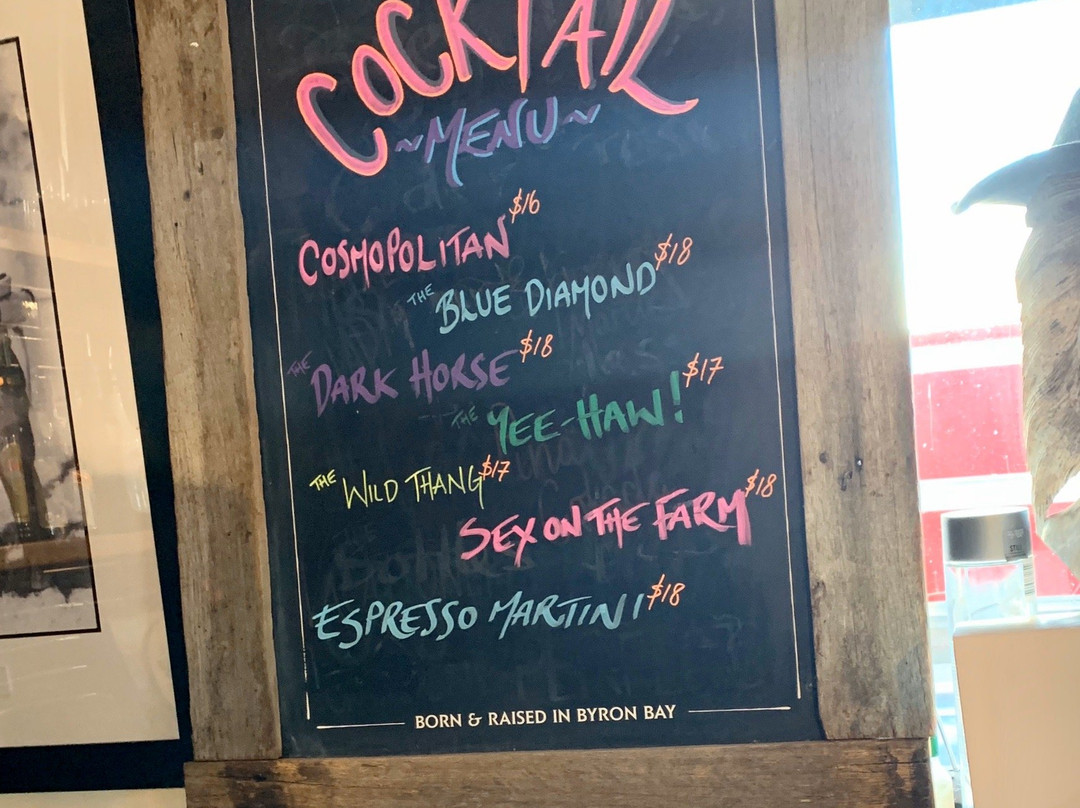 COCKTAIL
~MENU~
COSMOPOLITAN $16
THE BLUE DIAMOND $18
THE DARK HORSE $18
THE YEE-HAW! $17
THE WILD THANG $17
SEX ON THE FARM $18
ESPRESSO MARTINI $18
BORN & RAISED IN BYRON BAY